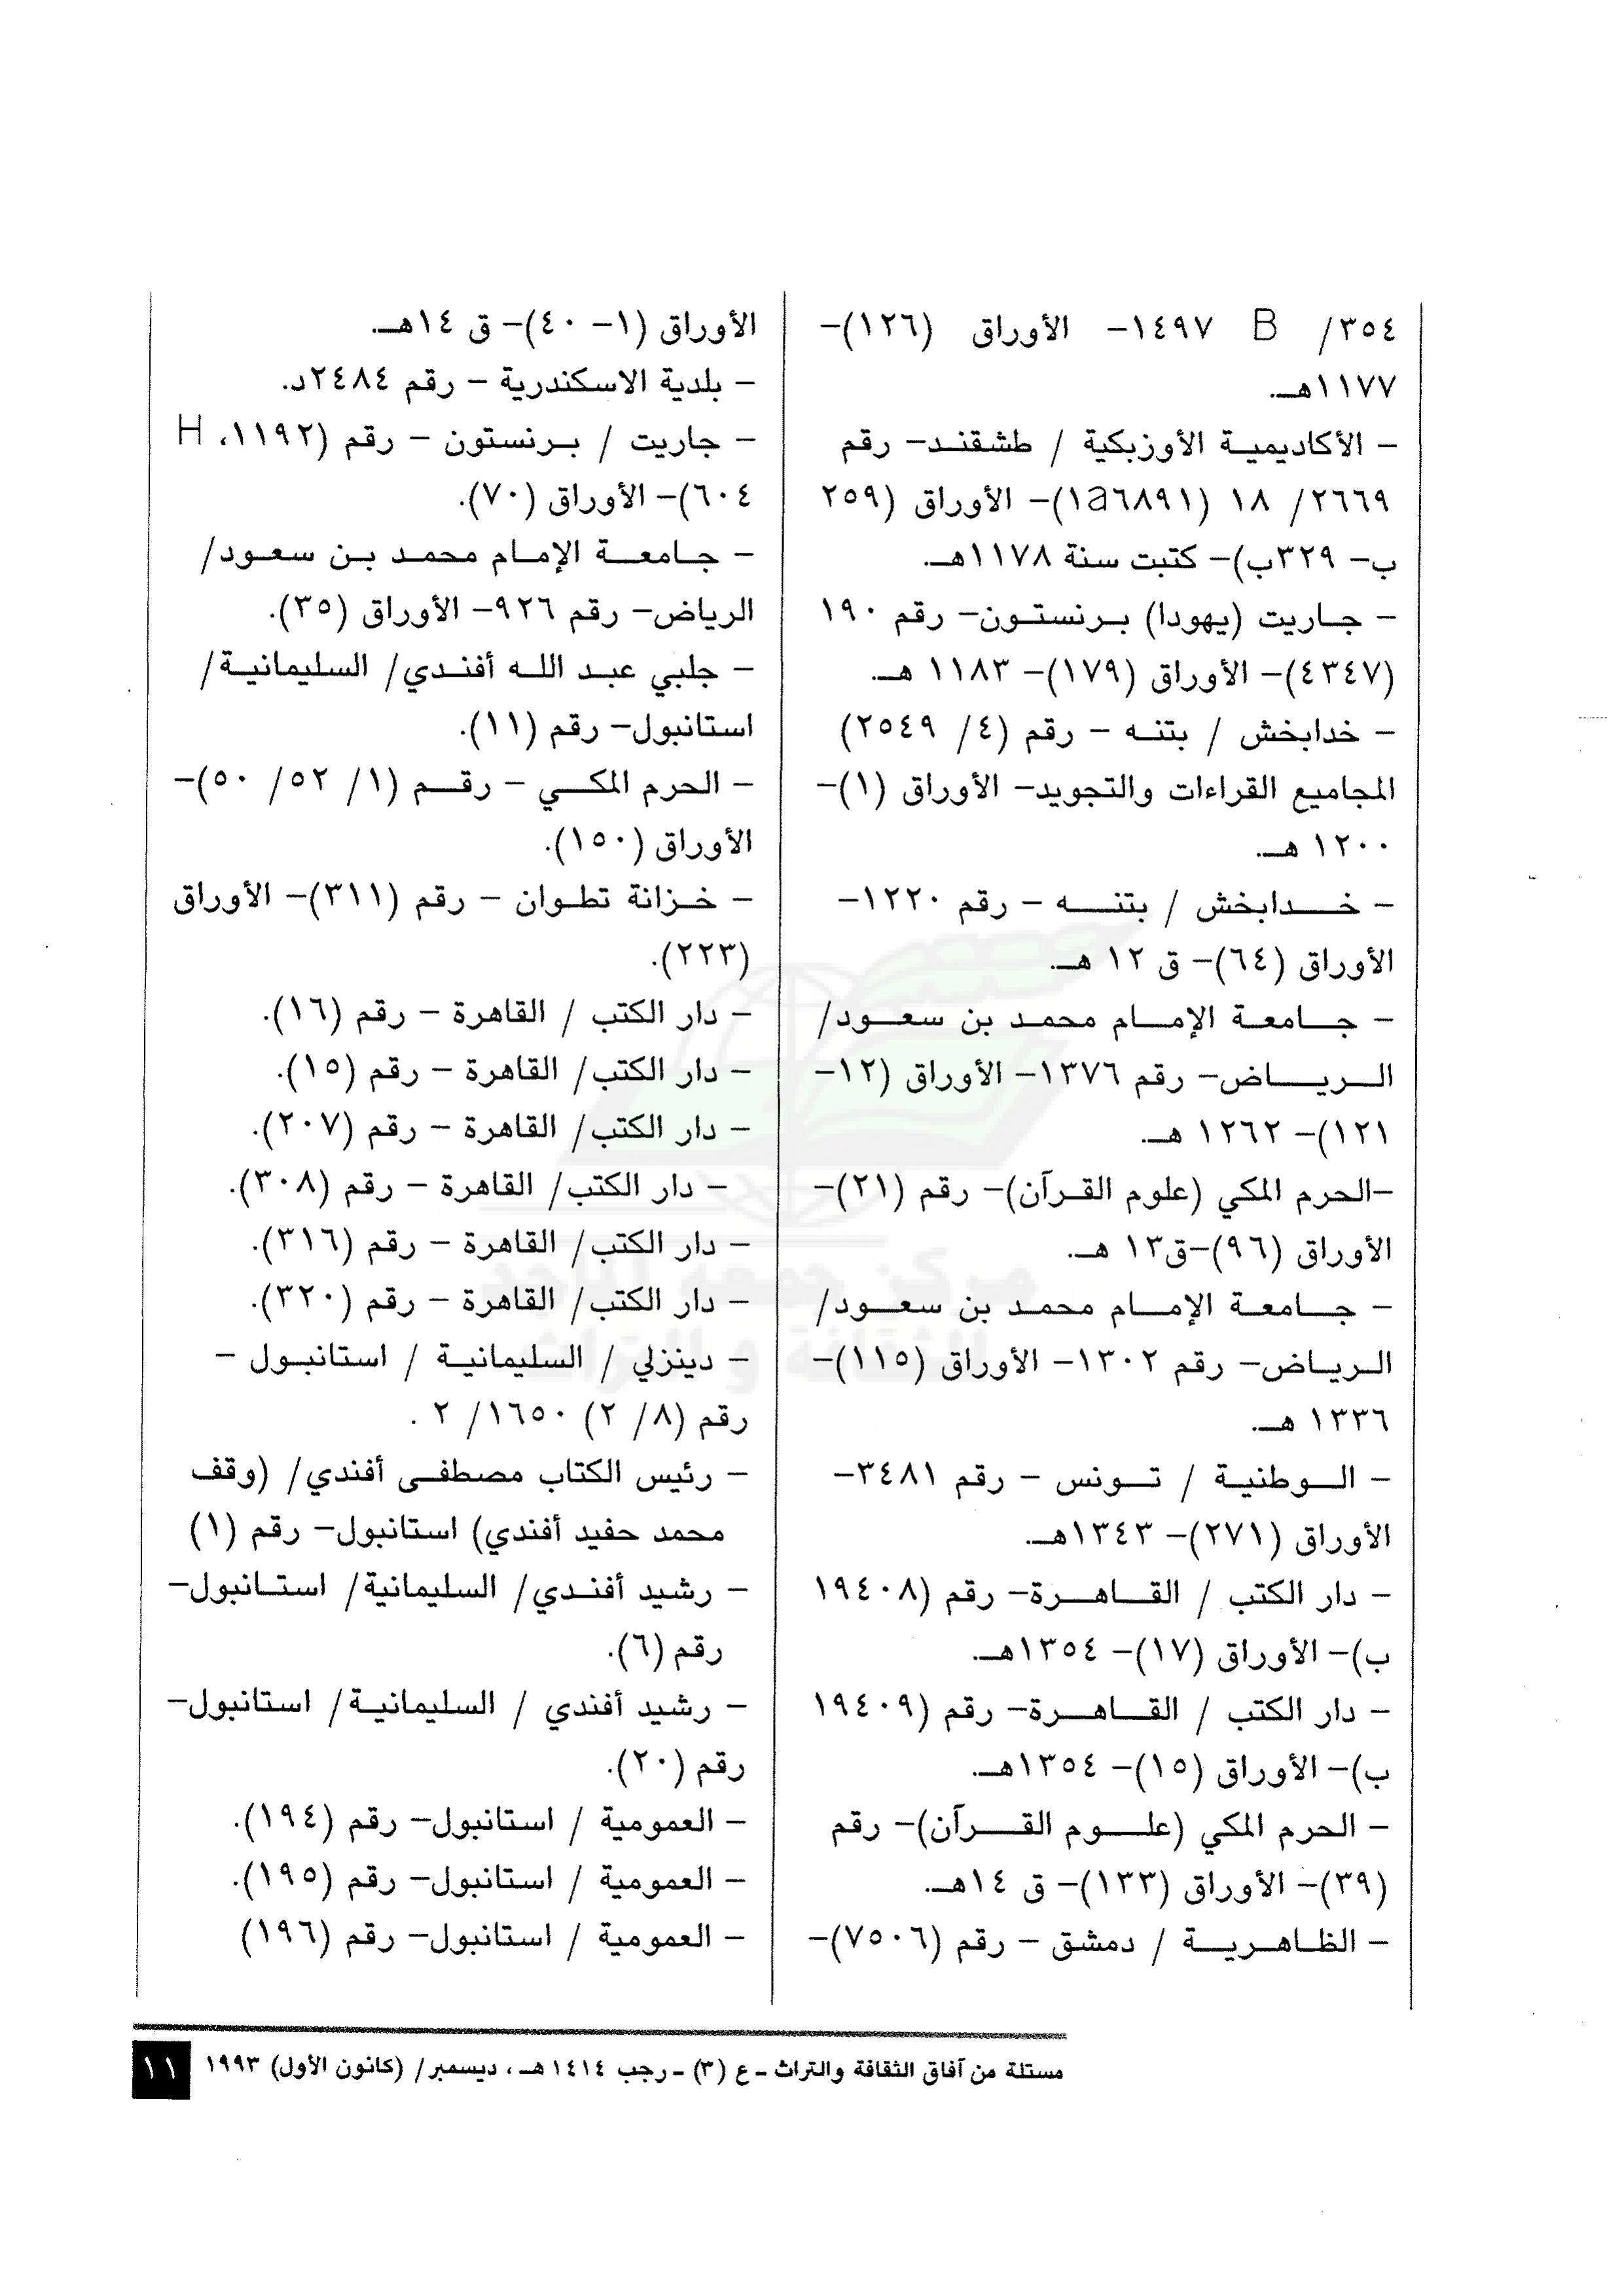 ٣٥٤/ B ١٤٩٧- الأوراق (١٢٦)-
١١٧٧هـ.
- الأكاديمية الأوزبكية / طشقند- رقم
٢٦٦٩/ ١٨ (١a٦٨٩١)- الأوراق (٢٥٩
ب- ٣٢٩ب)- كتبت سنة ١١٧٨هـ.
- جاريت (يهودا) برنستون- رقم ١٩٠
(٤٣٤٧)- الأوراق (١٧٩)- ١١٨٣ هـ.
- خدابخش / بتنه - رقم (٤/ ٢٥٤٩)
المجاميع القراءات والتجويد- الأوراق (١)-
١٢٠٠ هـ.
- خدابخش / بتنه - رقم ١٢٢٠-
الأوراق (٦٤)- ق ١٢ هـ.
- جامعة الإمام محمد بن سعود/
الرياض- رقم ١٣٧٦- الأوراق (١٢-
١٢١)- ١٢٦٢ هـ.
-الحرم المكي (علوم القرآن)- رقم (٢١)-
الأوراق (٩٦)-ق١٣ هـ.
- جامعة الإمام محمد بن سعود/
الرياض- رقم ١٣٠٢- الأوراق (١١٥)-
١٣٣٦ هـ.
- الوطنية / تونس - رقم ٣٤٨١-
الأوراق (٢٧١)- ١٣٤٣هـ.
- دار الكتب / القاهرة- رقم (١٩٤٠٨
ب)- الأوراق (١٧)- ١٣٥٤هـ.
- دار الكتب / القاهرة- رقم (١٩٤٠٩
ب)- الأوراق (١٥)- ١٣٥٤هـ.
- الحرم المكي (علوم القرآن)- رقم
(٣٩)- الأوراق (١٣٣)- ق ١٤هـ.
- الظاهرية / دمشق - رقم (٧٥٠٦)-
الأوراق (١- ٤٠)- ق ١٤هـ.
- بلدية الاسكندرية - رقم ٢٤٨٤د.
- جاريت / برنستون - رقم (١١٩٢، H
٦٠٤)- الأوراق (٧٠).
- جامعة الإمام محمد بن سعود/
الرياض- رقم ٩٢٦- الأوراق (٣٥).
- جلبي عبد الله أفندي/ السليمانية/
استانبول- رقم (١١).
- الحرم المكي - رقم (١/ ٥٢/ ٥٠)-
الأوراق (١٥٠).
- خزانة تطوان - رقم (٣١١)- الأوراق
(٢٢٣).
- دار الكتب / القاهرة - رقم (١٦).
- دار الكتب/ القاهرة - رقم (١٥).
- دار الكتب/ القاهرة - رقم (٢٠٧).
- دار الكتب/ القاهرة - رقم (٣٠٨).
- دار الكتب/ القاهرة - رقم (٣١٦).
- دار الكتب/ القاهرة - رقم (٣٢٠).
- دينزلي / السليمانية / استانبول -
رقم (٨/ ٢) ١٦٥٠/ ٢ .
- رئيس الكتاب مصطفى أفندي/ (وقف
محمد حفيد أفندي) استانبول- رقم (١)
- رشيد أفندي/ السليمانية/ استانبول-
رقم (٦).
- رشيد أفندي / السليمانية/ استانبول-
رقم (٢٠).
- العمومية / استانبول- رقم (١٩٤).
- العمومية / استانبول- رقم (١٩٥).
- العمومية / استانبول- رقم (١٩٦)
مركز جمعة الماجد
للثقافة والتراث
مستلة من آفاق الثقافة والتراث ـ ع (٣) ـ رجب ١٤١٤ هـ ، ديسمبر/ (كانون الأول) ١٩٩٣
١١